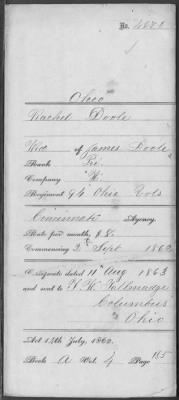 Ohio
Rachel Doole
Wid of James Doole
Rank Pri.
Company
Regiment 94 Ohio Vols
Cincinnati Agency.
Rate per month, $8.
Commencing Sept 1862
Certificate dated 11" Aug 1863
and sent to Tallmadge
Columbus
Ohio
Act 14th July, 1862.
Book A Vol. 4 Page 185